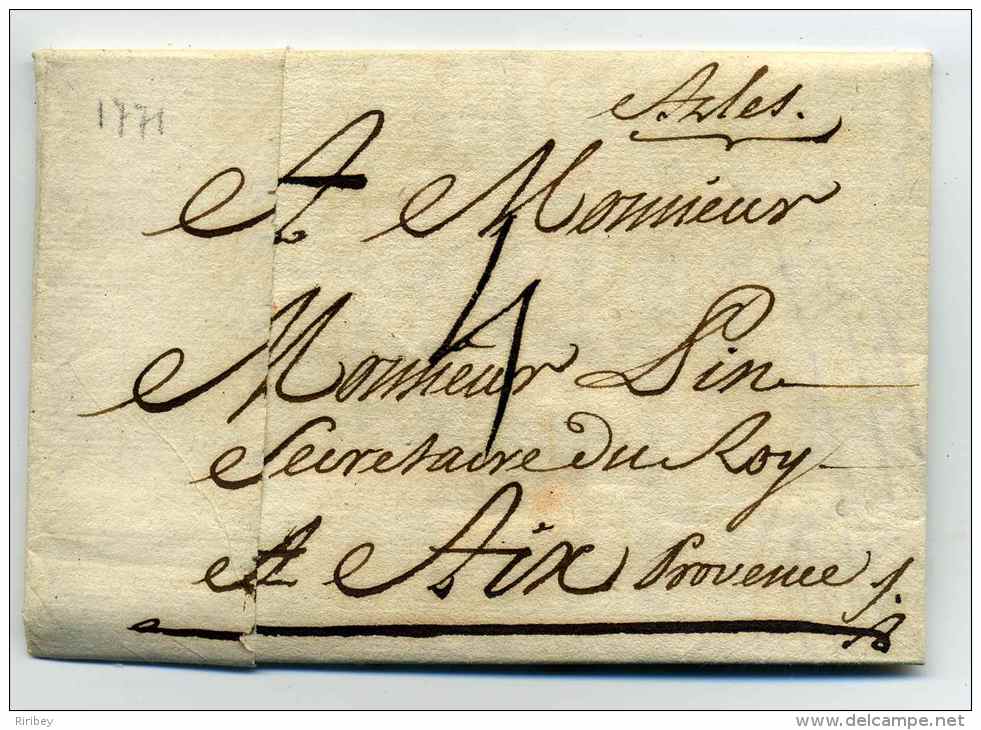 1771
Arles.
A Monsieur
4
Monsieur Pin
Secretaire du Roy
A Aix Provence
Riribey
www.delcampe.net